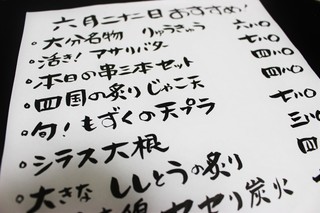 六月二十二日おすすめ！
・大分名物 りゅうきゅう 六八〇
・活き！アサリバター 七八〇
・本日の串三本セット 四八〇
・四国の炙りじゃこ天 四八〇
・旬！もずくの天プラ 七八〇
・シラス大根 三八〇
・大きなししとうの炙り 四八〇
セセリ炭火